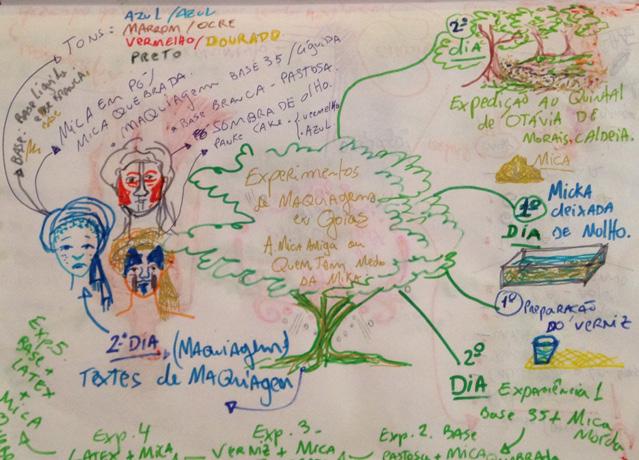 AZUL / AZUL
TONS: MARROM / OCRE
VERMELHO / DOURADO
PRETO
BASE: BASE líquida
E BRANCA.
MICA EM PÓ /
MICA QUEBRADA.
. MAQUIAGEM BASE 35 / LÍQUIDA
* BASE BRANCA - PASTOSA
SOMBRA DE OLHO.
PANKE CAKE. VERMELHO
. AZUL
Experimentos
de MAQUIAGEM
em Goiás
A Mica Amiga ou
Quem Tem Medo
DA MIKA.
2º
DIA
Expedição ao Quintal
de OTÁVIA DE
MORAIS, CALDEIA.
MICA
1º
DIA
Micka
deixada
de Molho.
1º
PREPARAÇÃO
DO VERNIZ
2º DIA (MAQUIAGEM)
TEXTES de MAQUIAGEM
2º
DIA
Experiência 1
Base 35 + Mica
Exp. 2. BASE
PASTOSA + MICA QUEBRADA
Exp. 3 -
VERNIZ + MICA
Exp. 4
LATEX + MIKA
Exp. 5
BASE +
LATEX
+
MICA